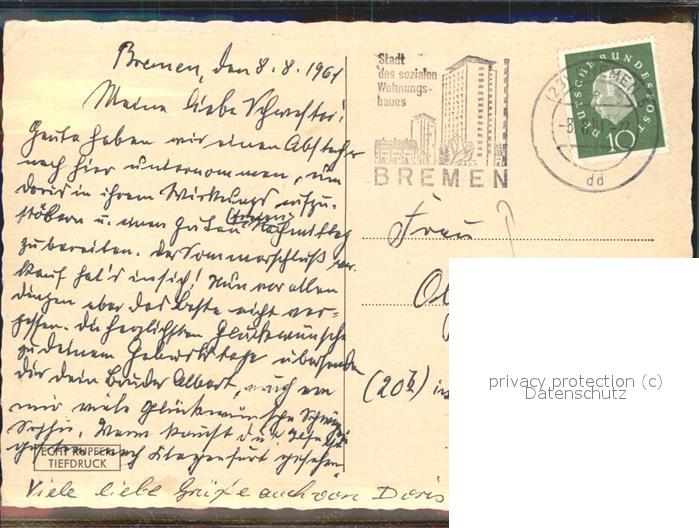 Bremen, den 8.8.1961
Meine liebe Schwester!
Heute haben wir einen Abstecher
nach hier unternommen, um
Doris in ihrem Wirkungs aufzu-
stöbern u. einen guten Nachmittag
zu bereiten. Der Sommerschluß ver-
kauf hat's in sich! Nun vor allen
dingen aber das Beste nicht ver-
gessen. Die herzlichsten Glückwünsche
zu Deinem Geburtstage übersendet
Dir Dein Bruder Albert, auch von
mir viele Glückwünsche
gestern nach Klagenfurt gesehen
Viele liebe Grüße auch von Doris
ECHT KUPFER-
TIEFDRUCK
Stadt
des sozialen
Wohnungs-
baues
BREMEN
DEUTSCHE BUNDESPOST
10
dd
Frau
(20b) in
privacy protection (c)
Datenschutz